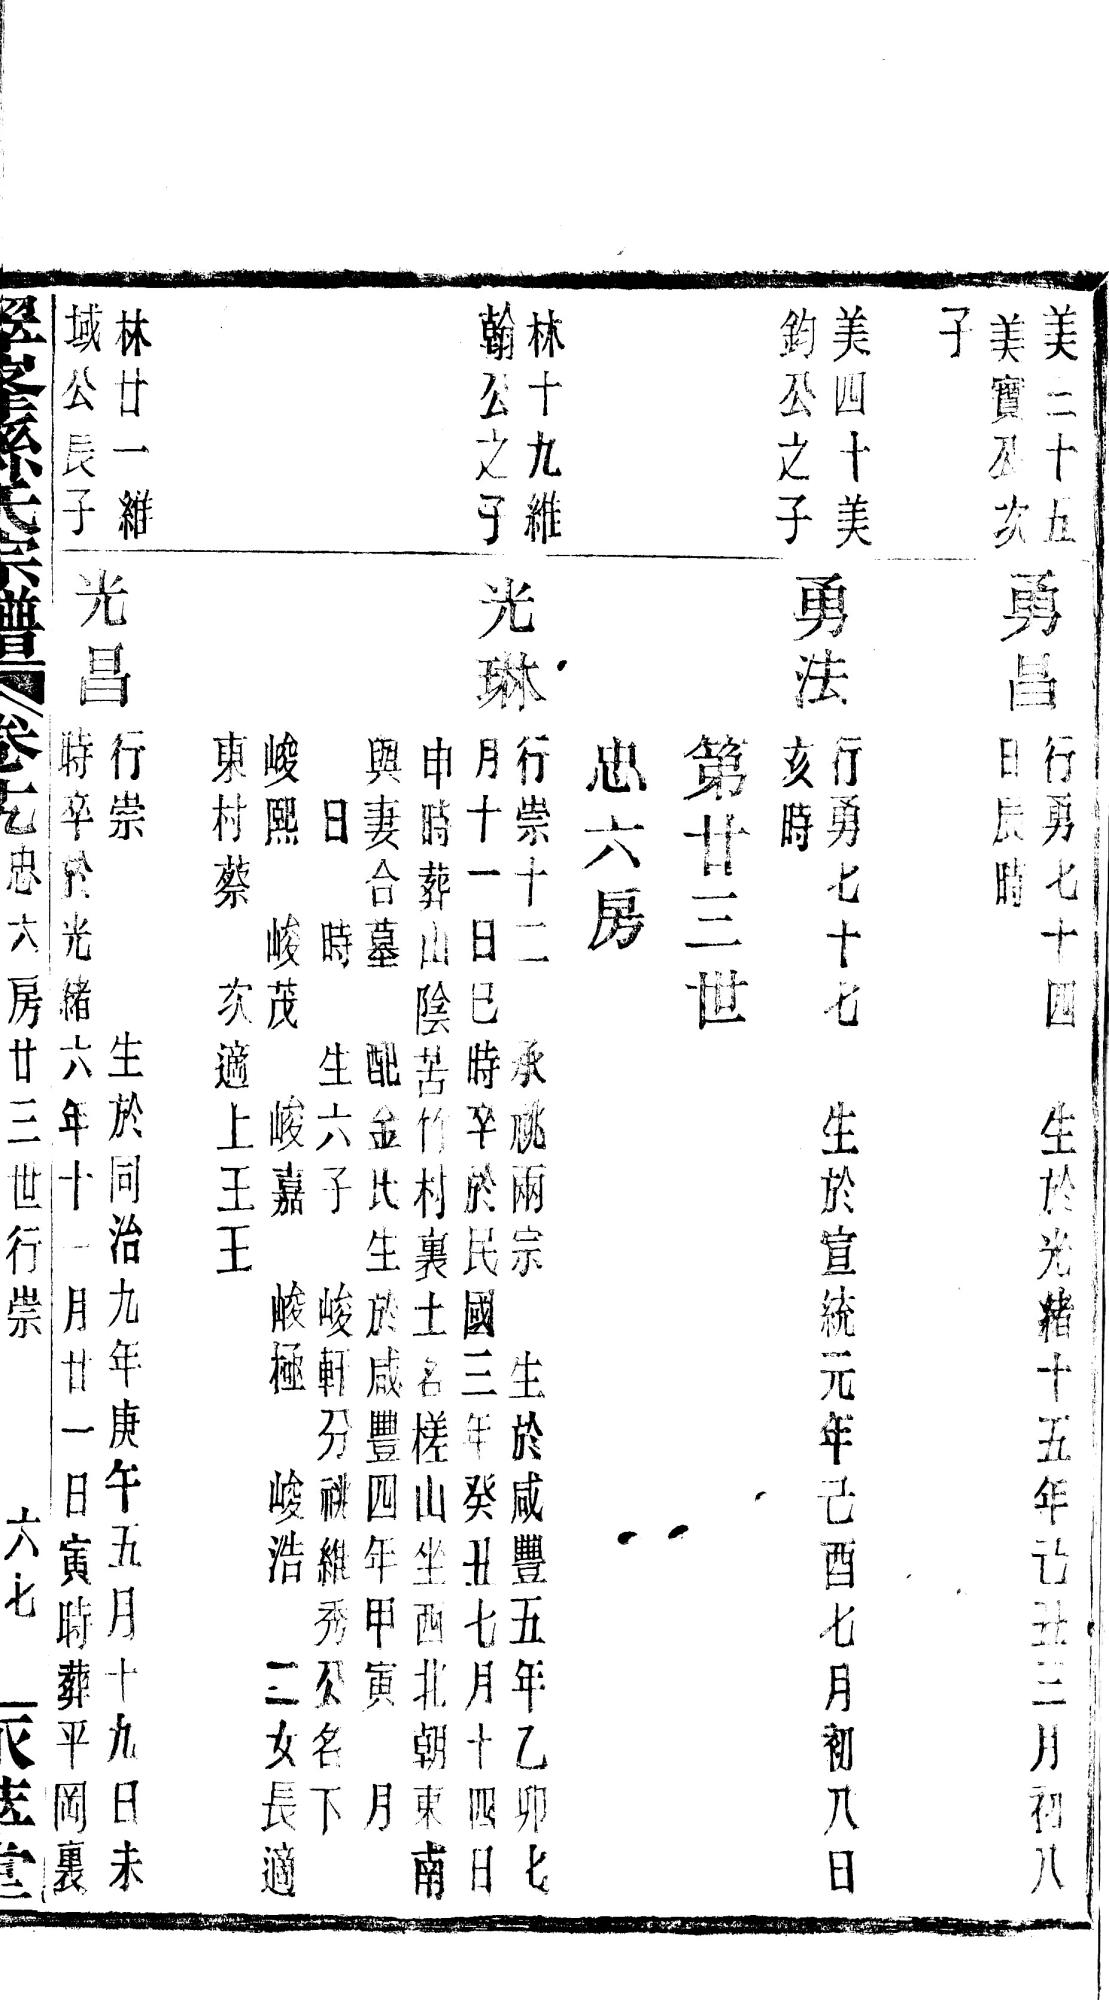 美三十五
美寶公次
子
勇昌
行勇七十四　生於光緒十五年己丑三月初八
日辰時
美四十美
鈞公之子
勇法
行勇七十七　生於宣統元年己酉七月初八日
亥時
第廿三世
忠六房
林十九維
翰公之子
光琳
行崇十二　承祧兩宗　生於咸豐五年乙卯七
月十一日巳時卒於民國三年癸丑七月十四日
申時葬山陰苦竹村裏土名槎山坐西北朝東南
與妻合墓　配金氏生於咸豐四年甲寅　月
日　時　生六子　峻軒分祧維秀公名下
峻熙　峻茂　峻嘉　峻極　峻浩　二女長適
東村蔡　次適上王王
林廿一維
域公長子
光昌
行崇　　　生於同治九年庚午五月十九日未
時卒於光緒六年十一月廿一日寅時葬平岡裏
孫氏宗譜　卷　忠六房廿三世行崇　六七　堂